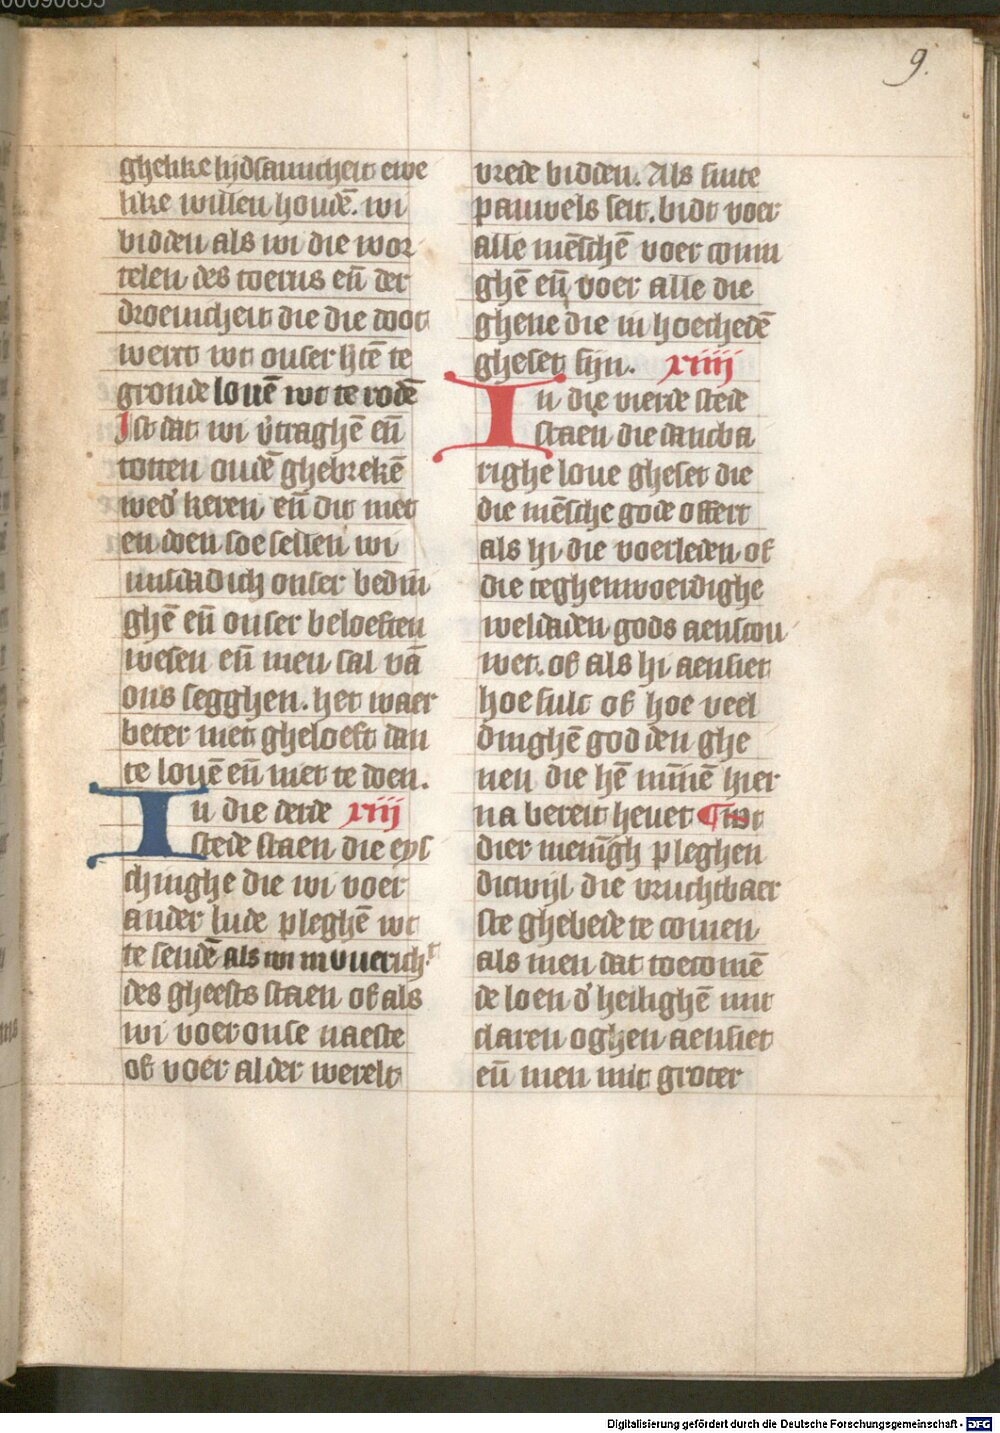 00090855
9.
ghelike lijdsamicheit ewe
like willen houdē. wi
bidden als wi die wor
telen des toerns eñ der
droeuicheit die die doot
werct wt onser htē te
gronde louē wt te rodē
Ist dat wi v'traghē eñ
totten oudē ghebrekē
wed' keren eñ dit niet
en doen soe sellen wi
misdadich onser bedin̄
ghē eñ onser beloeften
wesen eñ men sal vā
ons segghen. het waer
beter niet gheloeft dan
te louē eñ niet te doen.
In die derde xiij
stede staen die eys
chinghe die wi voer
ander lude pleghē wt
te sendē als wi in vuerich.t
des gheests staen of als
wi voer onse naeste
of voer alder werelt
vrede bidden. Als sinte
pauwels seit. bidt voer
alle mēschē voer conin
ghē eñ voer alle die
ghene die in hoechedē
gheset sijn. xiiij
In die vierde stede
staen die dancba
righe loue gheset die
die mēsche gode offert
als hi die voerleden of
die teghenwoerdighe
weldaden gods aenscou
wet. of als hi aensiet
hoe sulc of hoe veel
dinghē god den ghe
nen die hē min̄ē hier
na bereit heuet ¶ wt
dier menīgh pleghen
dicwijl die vruchtbaer
ste ghebede te comen
als men dat toecomē
de loen d' heilighē mit
claren oghen aensiet
eñ men mit groter
Digitalisierung gefördert durch die Deutsche Forschungsgemeinschaft - DFG